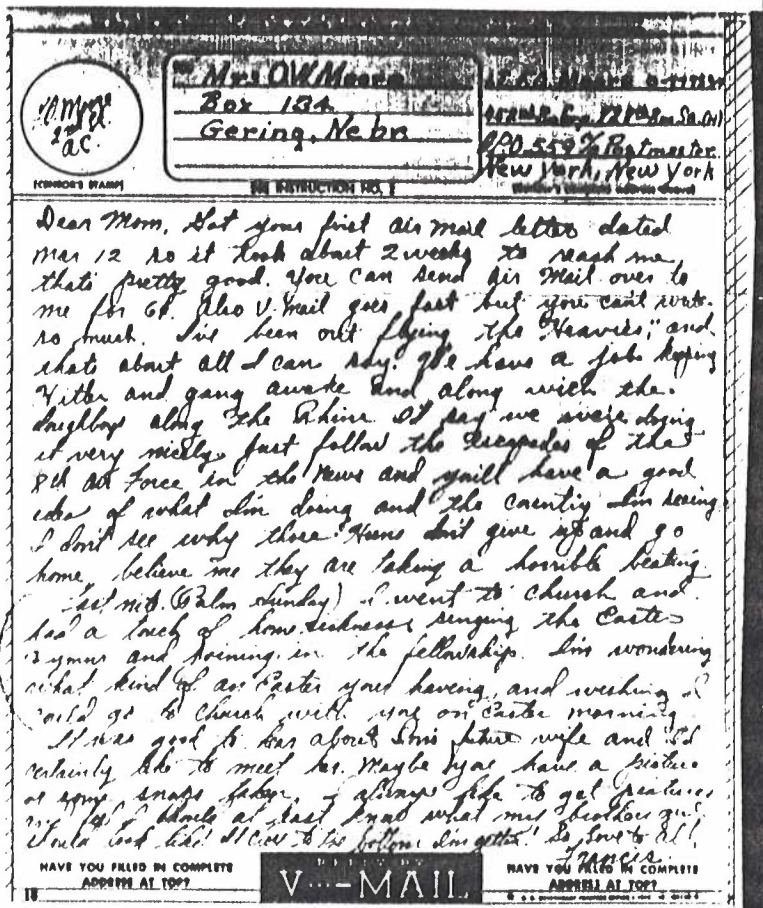 Mrs O.W. Moore
Box 134
Gering, Nebr
F. O. Moore
2nd Lt.
A.C.
(CENSOR'S STAMP)
SEE INSTRUCTION NO. 2
A.P.O. 559 % Postmaster
New York, New York
Dear Mom, Got your first air mail letter dated
Mar 12 so it took about 2 weeks to reach me,
thats pretty good. You can send air mail over to
me for 6¢. Also V-Mail goes fast but you cant write
so much. I've been out flying the "Heavies," and
thats about all I can say. We have a job keeping
Hitler and gang awake and along with the
doughboys along the Rhine I'd say we were doing
it very nicely. Just follow the escapades of the
8th Air Force in the news and you'll have a good
idea of what I'm doing and the country I'm seeing.
I don't see why those Huns don't give up and go
home, believe me they are taking a horrible beating.
Last nite (Palm Sunday) I went to church and
had a touch of homesickness singing the Easter
Hymns and joining in the fellowship. I'm wondering
what kind of an Easter your having, and wishing I
could go to Church with you on Easter morning.
It was good to hear about future wife and I'd
certainly like to meet her. Maybe you have a picture
or some snaps taken. I always like to get pictures
at least know what my brothers girl
would look like! to the bottom I'm gettin! So Love to all!
Francis
HAVE YOU FILLED IN COMPLETE
ADDRESS AT TOP?
REPLY BY
V···—MAIL
HAVE YOU FILLED IN COMPLETE
ADDRESS AT TOP?